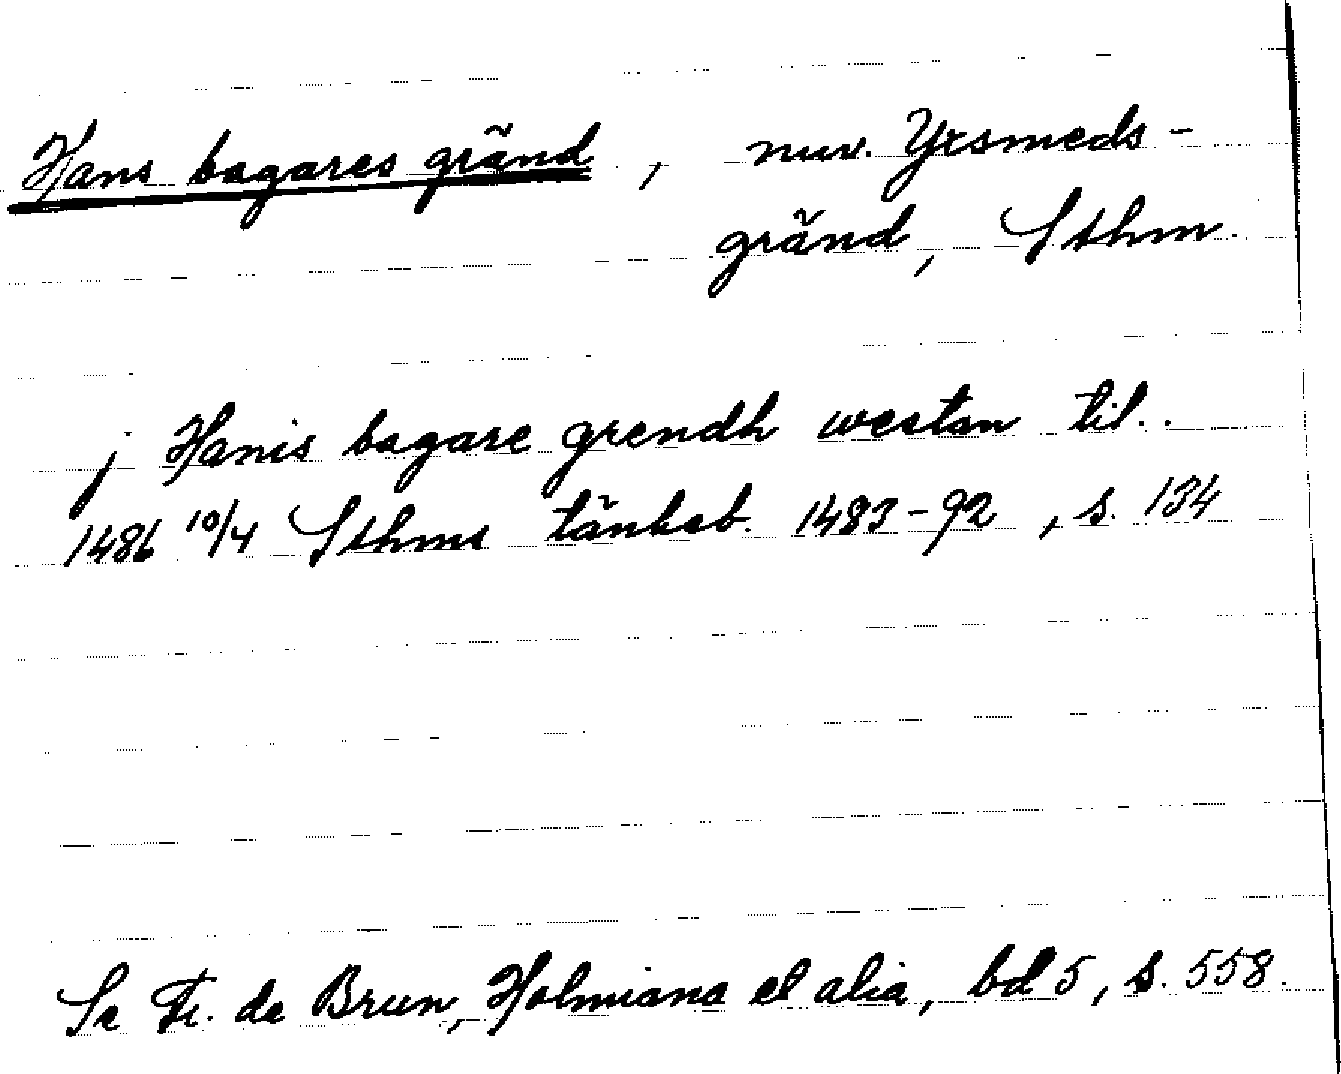 Hans bagares gränd, nuv. Yrsmeds-
gränd, Sthm.
j Hanis bagare grendh westan til..
1486 10/4 Sthms tänkeb. 1483-92, s. 134
Se Fr. de Brun, Holmiana et alia, bd 5, s. 558.